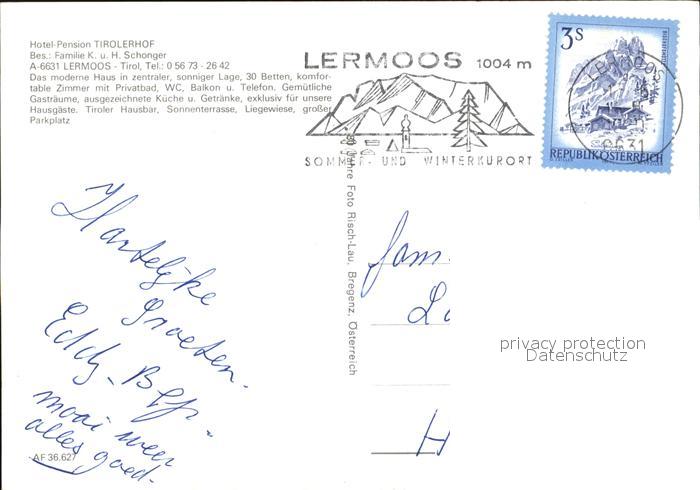 Hotel-Pension TIROLERHOF
Bes.: Familie K. u. H. Schonger
A-6631 LERMOOS - Tirol, Tel.: 0 56 73 - 26 42
Das moderne Haus in zentraler, sonniger Lage, 30 Betten, komfor-
table Zimmer mit Privatbad, WC, Balkon u. Telefon. Gemütliche
Gasträume, ausgezeichnete Küche u. Getränke, exklusiv für unsere
Hausgäste. Tiroler Hausbar, Sonnenterrasse, Liegewiese, großer
Parkplatz
LERMOOS 1004 m
SOMMER- UND WINTERKURORT
3S
REPUBLIK ÖSTERREICH
LERMOOS
6631
Jahre Foto Risch-Lau, Bregenz, Österreich
Hartelijke
Groeten.
Eddy - Bep.
mooi weer
alles goed.
AF 36.627
fam.
L
H
privacy protection
Datenschutz